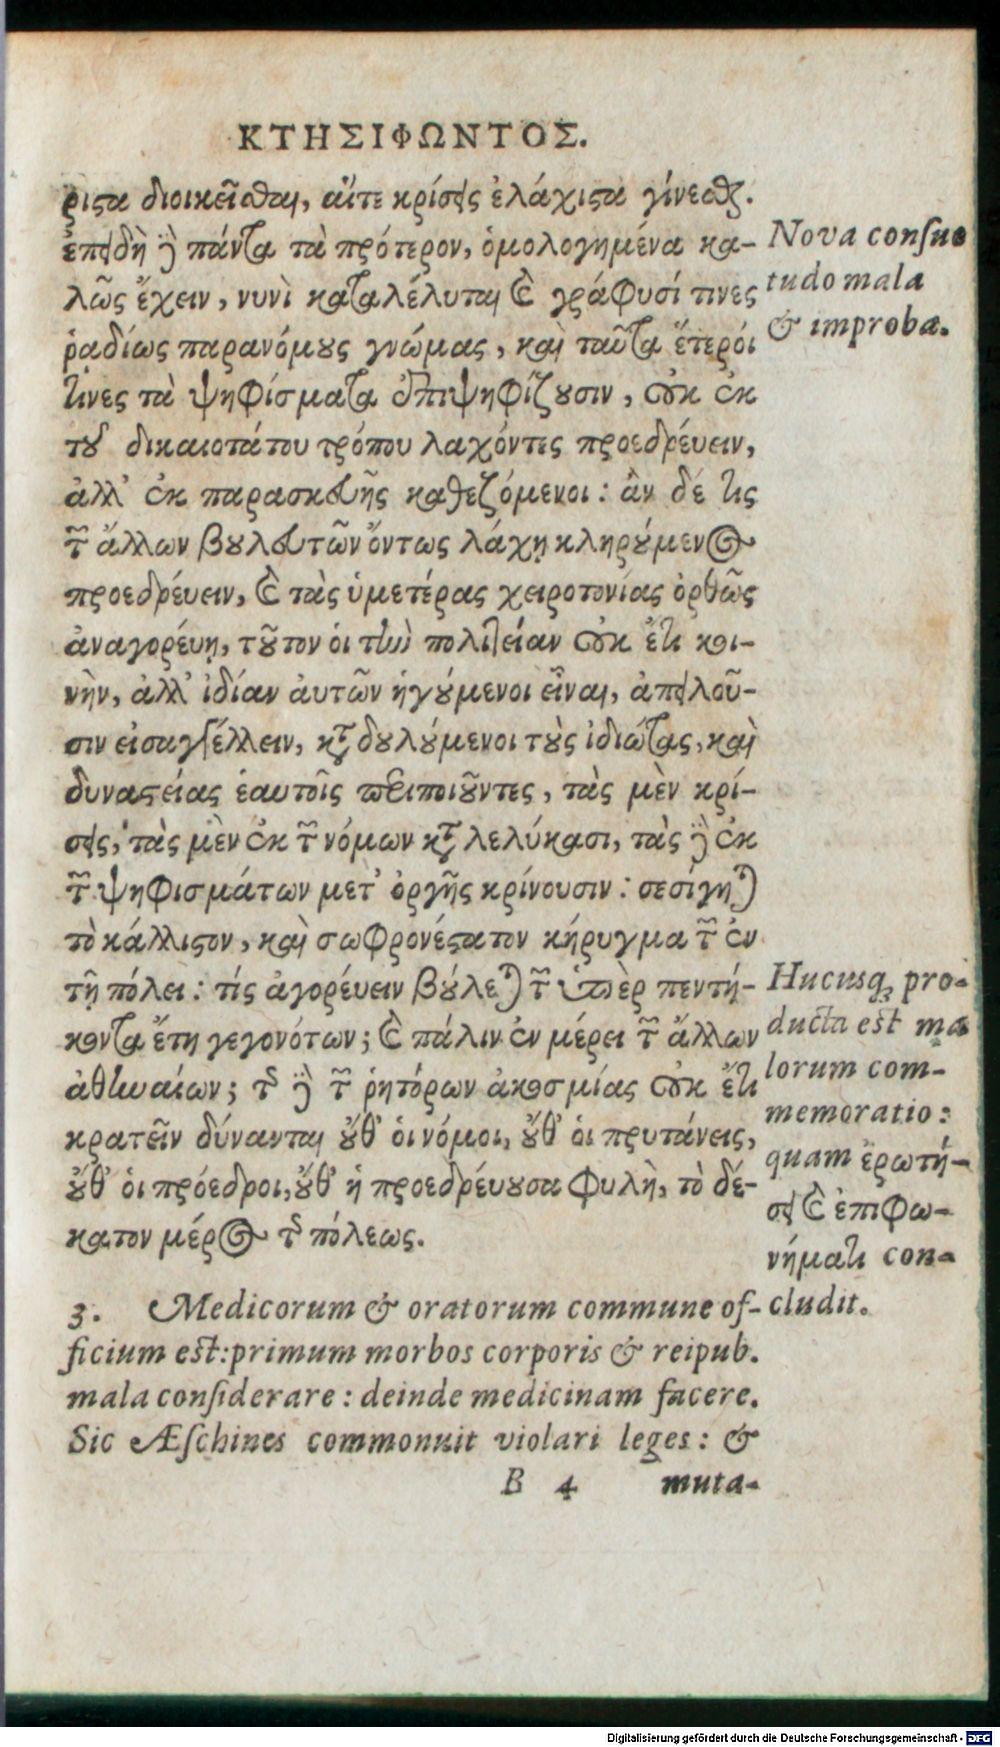 ΚΤΗΣΙΦΩΝΤΟΣ.
ριστα διοικεῖσθαι, αἵτε κρίσεις ἐλάχιστα γίνεσθαι.
ἐπειδὴ δὲ πάντα τὰ πρότερον, ὁμολογημένα κα-
λῶς ἔχειν, νυνὶ καταλέλυται καὶ γράφουσί τινες
ῥαδίως παρανόμους γνώμας, καὶ ταῦτα ἕτεροί
τινες τὰ ψηφίσματα ἐπιψηφίζουσιν, οὐκ ἐκ
τοῦ δικαιοτάτου τρόπου λαχόντες προεδρέυειν,
ἀλλ' ἐκ παρασκευῆς καθεζόμενοι: ἂν δέ τις
τῶν ἄλλων βουλευτῶν ὄντως λάχῃ κληρούμενος
προεδρέυειν, καὶ τὰς ὑμετέρας χειροτονίας ὀρθῶς
ἀναγορέυῃ, τοῦτον ὁι τὴν πολιτείαν οὐκ ἔτι κοι-
νὴν, ἀλλ' ἰδίαν ἁυτῶν ἡγούμενοι εἶναι, ἀπειλοῦ-
σιν εἰσαγγέλλειν, καταδουλούμενοι τοὺς ἰδιώτας, καὶ
δυναστείας ἑαυτοῖς περιποιοῦντες, τὰς μὲν κρί-
σεις, τὰς μὲν ἐκ τῶν νόμων καταλελύκασι, τὰς δὲ ἐκ
τῶν ψηφισμάτων μετ' ὀργῆς κρίνουσιν: σεσίγηται
τὸ κάλλιστον, καὶ σωφρονέστατον κήρυγμα τῶν ἐν
τῇ πόλει: τίς ἀγορέυειν βούλεται τῶν ὑπὲρ πεντή-
κοντα ἔτη γεγονότων; καὶ πάλιν ἐν μέρει τῶν ἄλλων
ἀθηναίων; τῆς δὲ τῶν ῥητόρων ἀκοσμίας οὐκ ἔτι
κρατεῖν δύνανται οὔθ' ὁι νόμοι, οὔθ' ὁι πρυτάνεις,
οὔθ' ὁι πρόεδροι, οὔθ' ἡ προεδρέυουσα φυλὴ, τὸ δέ-
κατον μέρος τῆς πόλεως.
3. Medicorum & oratorum commune of-
ficium est: primum morbos corporis & reipub.
mala conſiderare: deinde medicinam facere.
Sic Æſchines commonuit violari leges: &
B 4 muta-
Nova conſue
tudo mala
& improba.
Hucusq; pro-
ducta est ma
lorum com-
memoratio:
quam ἐρωτή-
σει καὶ ἐπιφω-
νήματι con-
cludit.
Digitalisierung gefördert durch die Deutsche Forschungsgemeinschaft - DFG